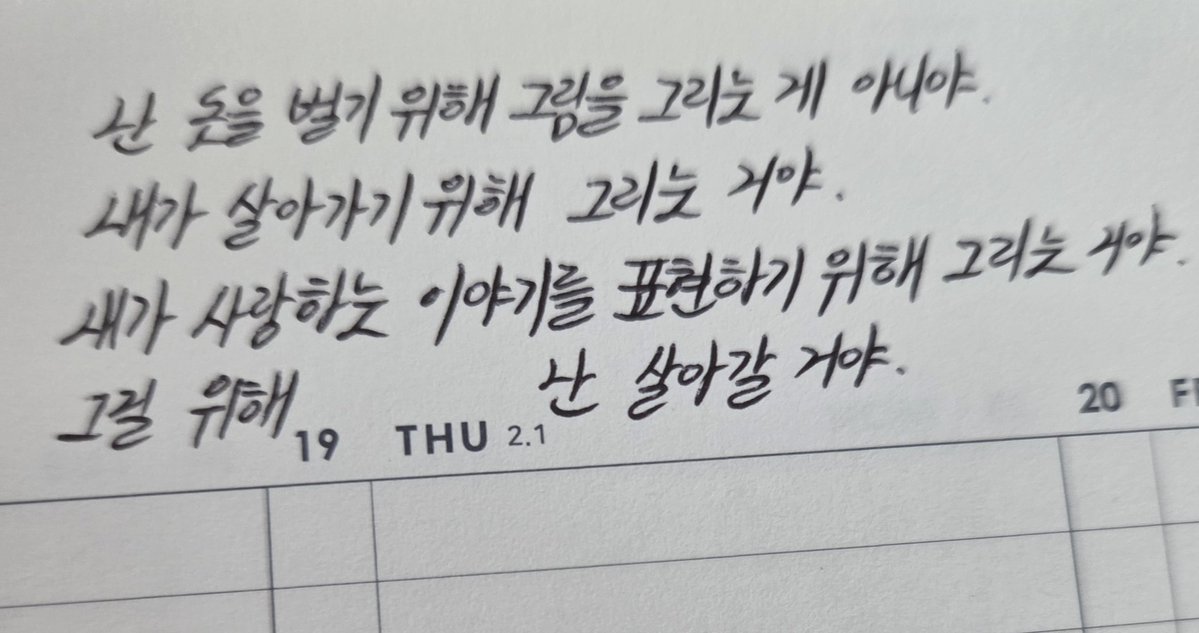 난 돈을 벌기 위해 그림을 그리는 게 아니야.
내가 살아가기 위해 그리는 거야.
내가 사랑하는 이야기를 표현하기 위해 그리는 거야.
그걸 위해 난 살아갈 거야.
19 THU 2.1 20